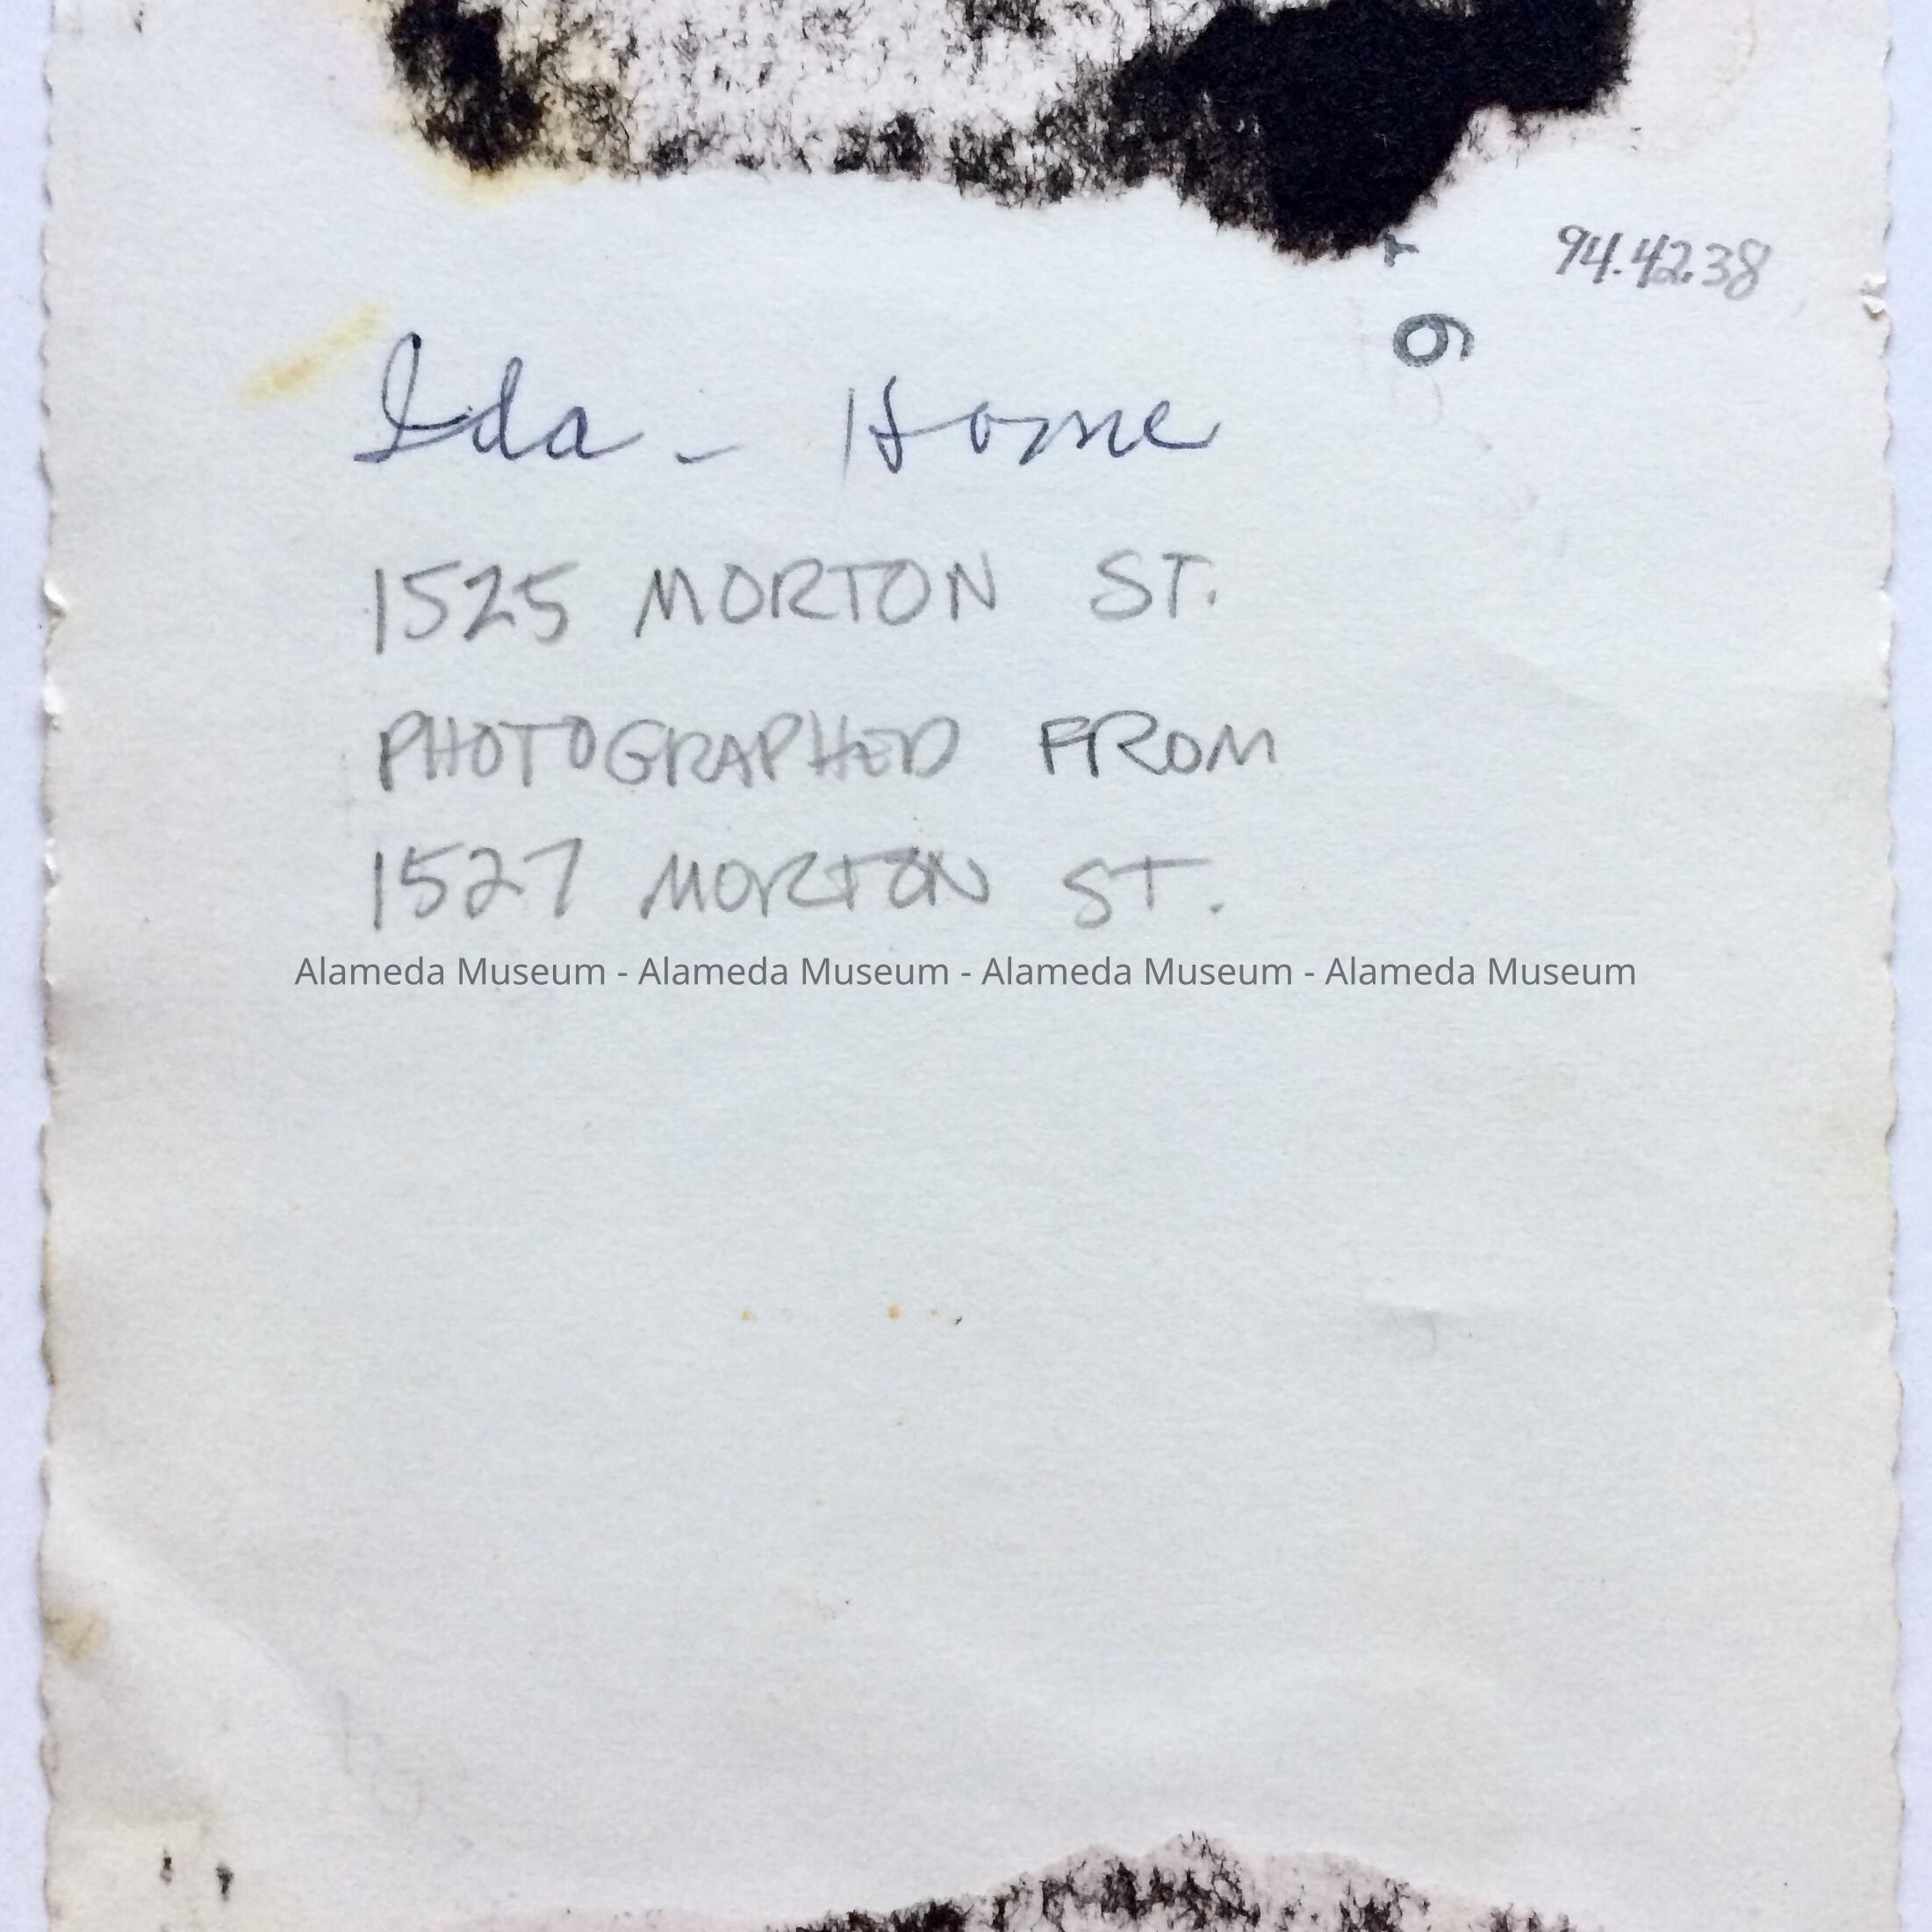 94.4238
6
Ida - Home
1525 MORTON ST.
PHOTOGRAPHED FROM
1527 MORTON ST.
Alameda Museum - Alameda Museum - Alameda Museum - Alameda Museum